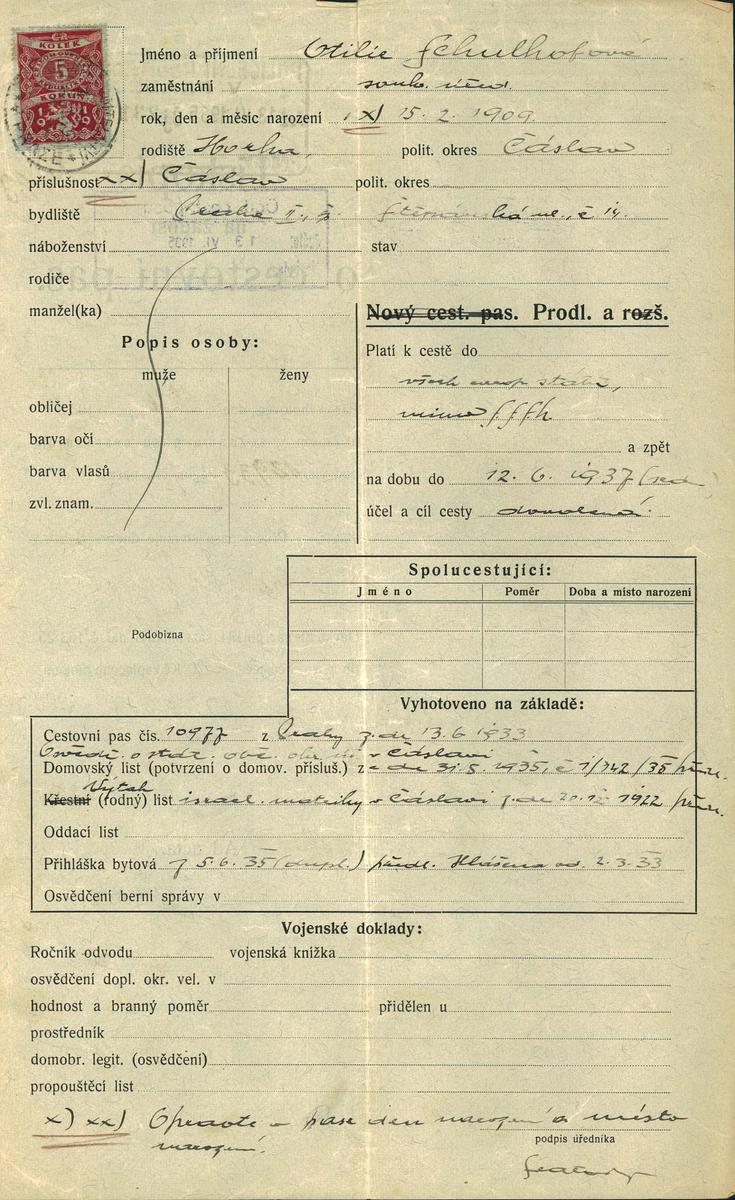 ČR
KOLEK
5
KORUN
1919
Jméno a příjmení Otilie Schulhofová
zaměstnání soukr. úřed.
rok, den a měsíc narození x) 15. 2. 1909.
rodiště Horka, polit. okres Čáslav
příslušnost xx) Čáslav polit. okres
bydliště Praha II., Štěpánská ul., č 14.
náboženství stav
rodiče
manžel(ka)
Nový cest. pas. Prodl. a rozš.
Popis osoby:
muže ženy
obličej
barva očí
barva vlasů
zvl. znam.
Platí k cestě do
všech evrop. států,
mimo
a zpět
na dobu do 12. 6. 1937
účel a cíl cesty dovolená.
Podobizna
Spolucestující:
Jméno Poměr Doba a místo narození
Vyhotoveno na základě:
Cestovní pas čís. 10977 z Prahy z. dr 13. 6 1933
Osvědč. o stát. obč. v Čáslavi
Domovský list (potvrzení o domov. přísluš.) z de 31. 5. 1935, č 1/342/35
Výtah
Křestní (rodný) list israel. matriky v Čáslavi 1922
Oddací list
Přihláška bytová z 5. 6. 35 (dupl.) předl. Hlášena od 2. 3. 33
Osvědčení berní správy v
Vojenské doklady:
Ročník odvodu vojenská knížka
osvědčení dopl. okr. vel. v
hodnost a branný poměr přidělen u
prostředník
domobr. legit. (osvědčení)
propouštěcí list
x) xx) Opravte v pase den narození a místo
narození.
podpis úředníka